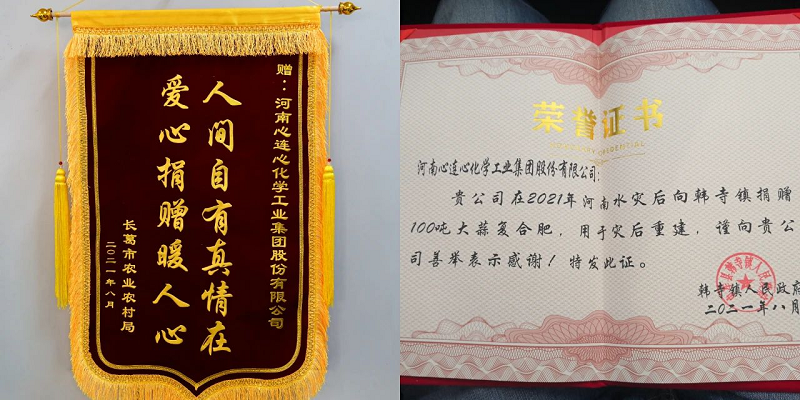 赠：河南心连心化学工业集团股份有限公司
人间自有真情在
爱心捐赠暖人心
长葛市农业农村局
二〇二一年八月
荣誉证书
河南心连心化学工业集团股份有限公司:
贵公司在2021年河南水灾后向韩寺镇捐赠
100吨大蒜复合肥，用于灾后重建，谨向贵公
司善举表示感谢！特发此证。
韩寺镇人民政府
二〇二一年八月